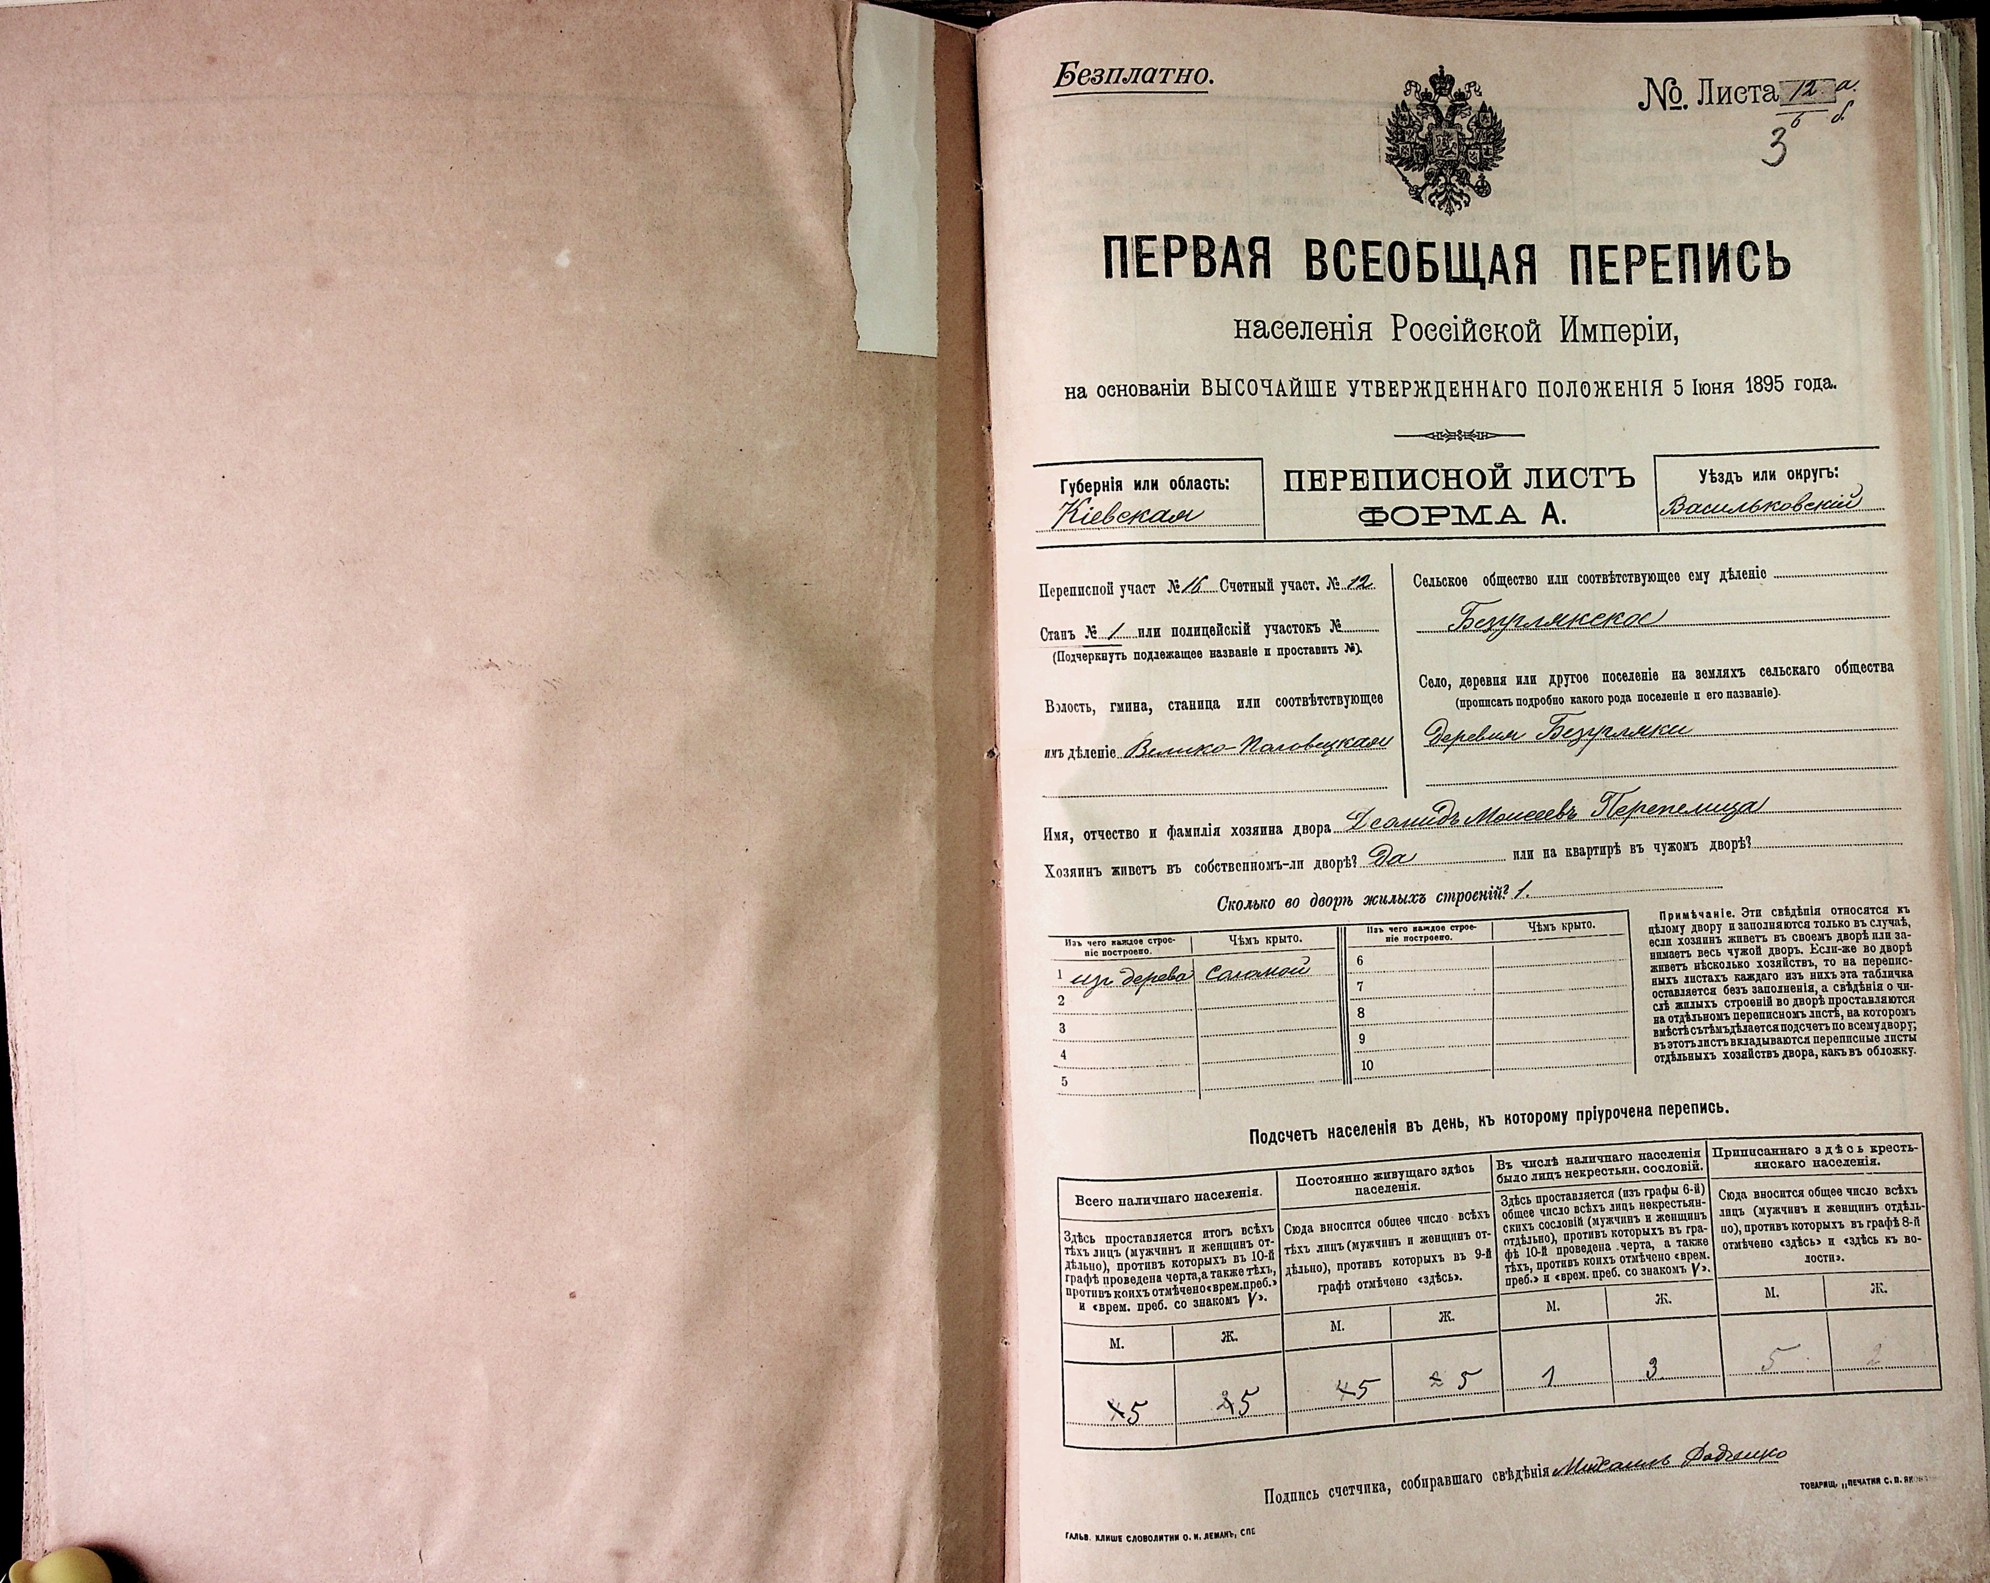 Безплатно.
№ Листа 12 а.
б б.
3
ПЕРВАЯ ВСЕОБЩАЯ ПЕРЕПИСЬ
населенія Россійской Имперіи,
на основаніи ВЫСОЧАЙШЕ УТВЕРЖДЕННАГО ПОЛОЖЕНІЯ 5 Іюня 1895 года.
Губернія или область:
Кіевская
ПЕРЕПИСНОЙ ЛИСТЪ
ФОРМА А.
Уѣздъ или округъ:
Васильковскій
Переписной участ № 16 Счетный участ. № 12
Станъ № 1 или полицейскій участокъ №
(Подчеркнуть подлежащее названіе и проставить №).
Волость, гмина, станица или соотвѣтствующее
имъ дѣленіе Велико-Половецкая
Сельское общество или соотвѣтствующее ему дѣленіе
Безуглякское
Село, деревня или другое поселеніе на земляхъ сельскаго общества
(прописать подробно какого рода поселеніе и его названіе).
Деревня Безугляки
Имя, отчество и фамилія хозяина двора Моисеевъ Перепелица
Хозяинъ живетъ въ собственномъ-ли дворѣ? Да или на квартирѣ въ чужомъ дворѣ?
Сколько во дворѣ жилыхъ строеній? 1.
Изъ чего каждое строе-
ніе построено.
Чѣмъ крыто.
Изъ чего каждое строе-
ніе построено.
Чѣмъ крыто.
1 изъ дерева соломой
2
3
4
5
6
7
8
9
10
Примѣчаніе. Эти свѣдѣнія относятся къ
цѣлому двору и заполняются только въ случаѣ,
если хозяинъ живетъ въ своемъ дворѣ или за-
нимаетъ весь чужой дворъ. Если-же во дворѣ
живетъ нѣсколько хозяйствъ, то на перепис-
ныхъ листахъ каждаго изъ нихъ эта табличка
оставляется безъ заполненія, а свѣдѣнія о чи-
слѣ жилыхъ строеній во дворѣ проставляются
на отдѣльномъ переписномъ листѣ, на которомъ
вмѣстѣ съ тѣмъ дѣлается подсчетъ по всему двору;
въ этотъ листъ вкладываются переписные листы
отдѣльныхъ хозяйствъ двора, какъ въ обложку.
Подсчетъ населенія въ день, къ которому пріурочена перепись.
Всего наличнаго населенія.
Здѣсь проставляется итогъ всѣхъ
тѣхъ лицъ (мужчинъ и женщинъ от-
дѣльно), противъ которыхъ въ 10-й
графѣ проведена черта, а также тѣхъ,
противъ коихъ отмѣчено «врем. преб.»
и «врем. преб. со знакомъ V».
М. Ж.
4 5 2 5
Постоянно живущаго здѣсь
населенія.
Сюда вносится общее число всѣхъ
тѣхъ лицъ (мужчинъ и женщинъ от-
дѣльно), противъ которыхъ въ 9-й
графѣ отмѣчено «здѣсь».
М. Ж.
4 5 2 5
Въ числѣ наличнаго населенія
было лицъ некрестьян. сословій.
Здѣсь проставляется (изъ графы 6-й)
общее число всѣхъ лицъ некрестьян-
скихъ сословій (мужчинъ и женщинъ
отдѣльно), противъ которыхъ въ гра-
фѣ 10-й проведена черта, а также
тѣхъ, противъ коихъ отмѣчено «врем.
преб.» и «врем. преб. со знакомъ V».
М. Ж.
1 3
Приписаннаго здѣсь кресть-
янскаго населенія.
Сюда вносится общее число всѣхъ
лицъ (мужчинъ и женщинъ отдѣль-
но), противъ которыхъ въ графѣ 8-й
отмѣчено «здѣсь» и «здѣсь къ во-
лости».
М. Ж.
5 2
Подпись счетчика, собиравшаго свѣдѣнія Михаилъ
ТОВАРИЩ. „ПЕЧАТНЯ С. П. ЯКО
ГАЛЬВ. КЛИШЕ СЛОВОЛИТНИ О. И. ЛЕМАНЪ, СПБ